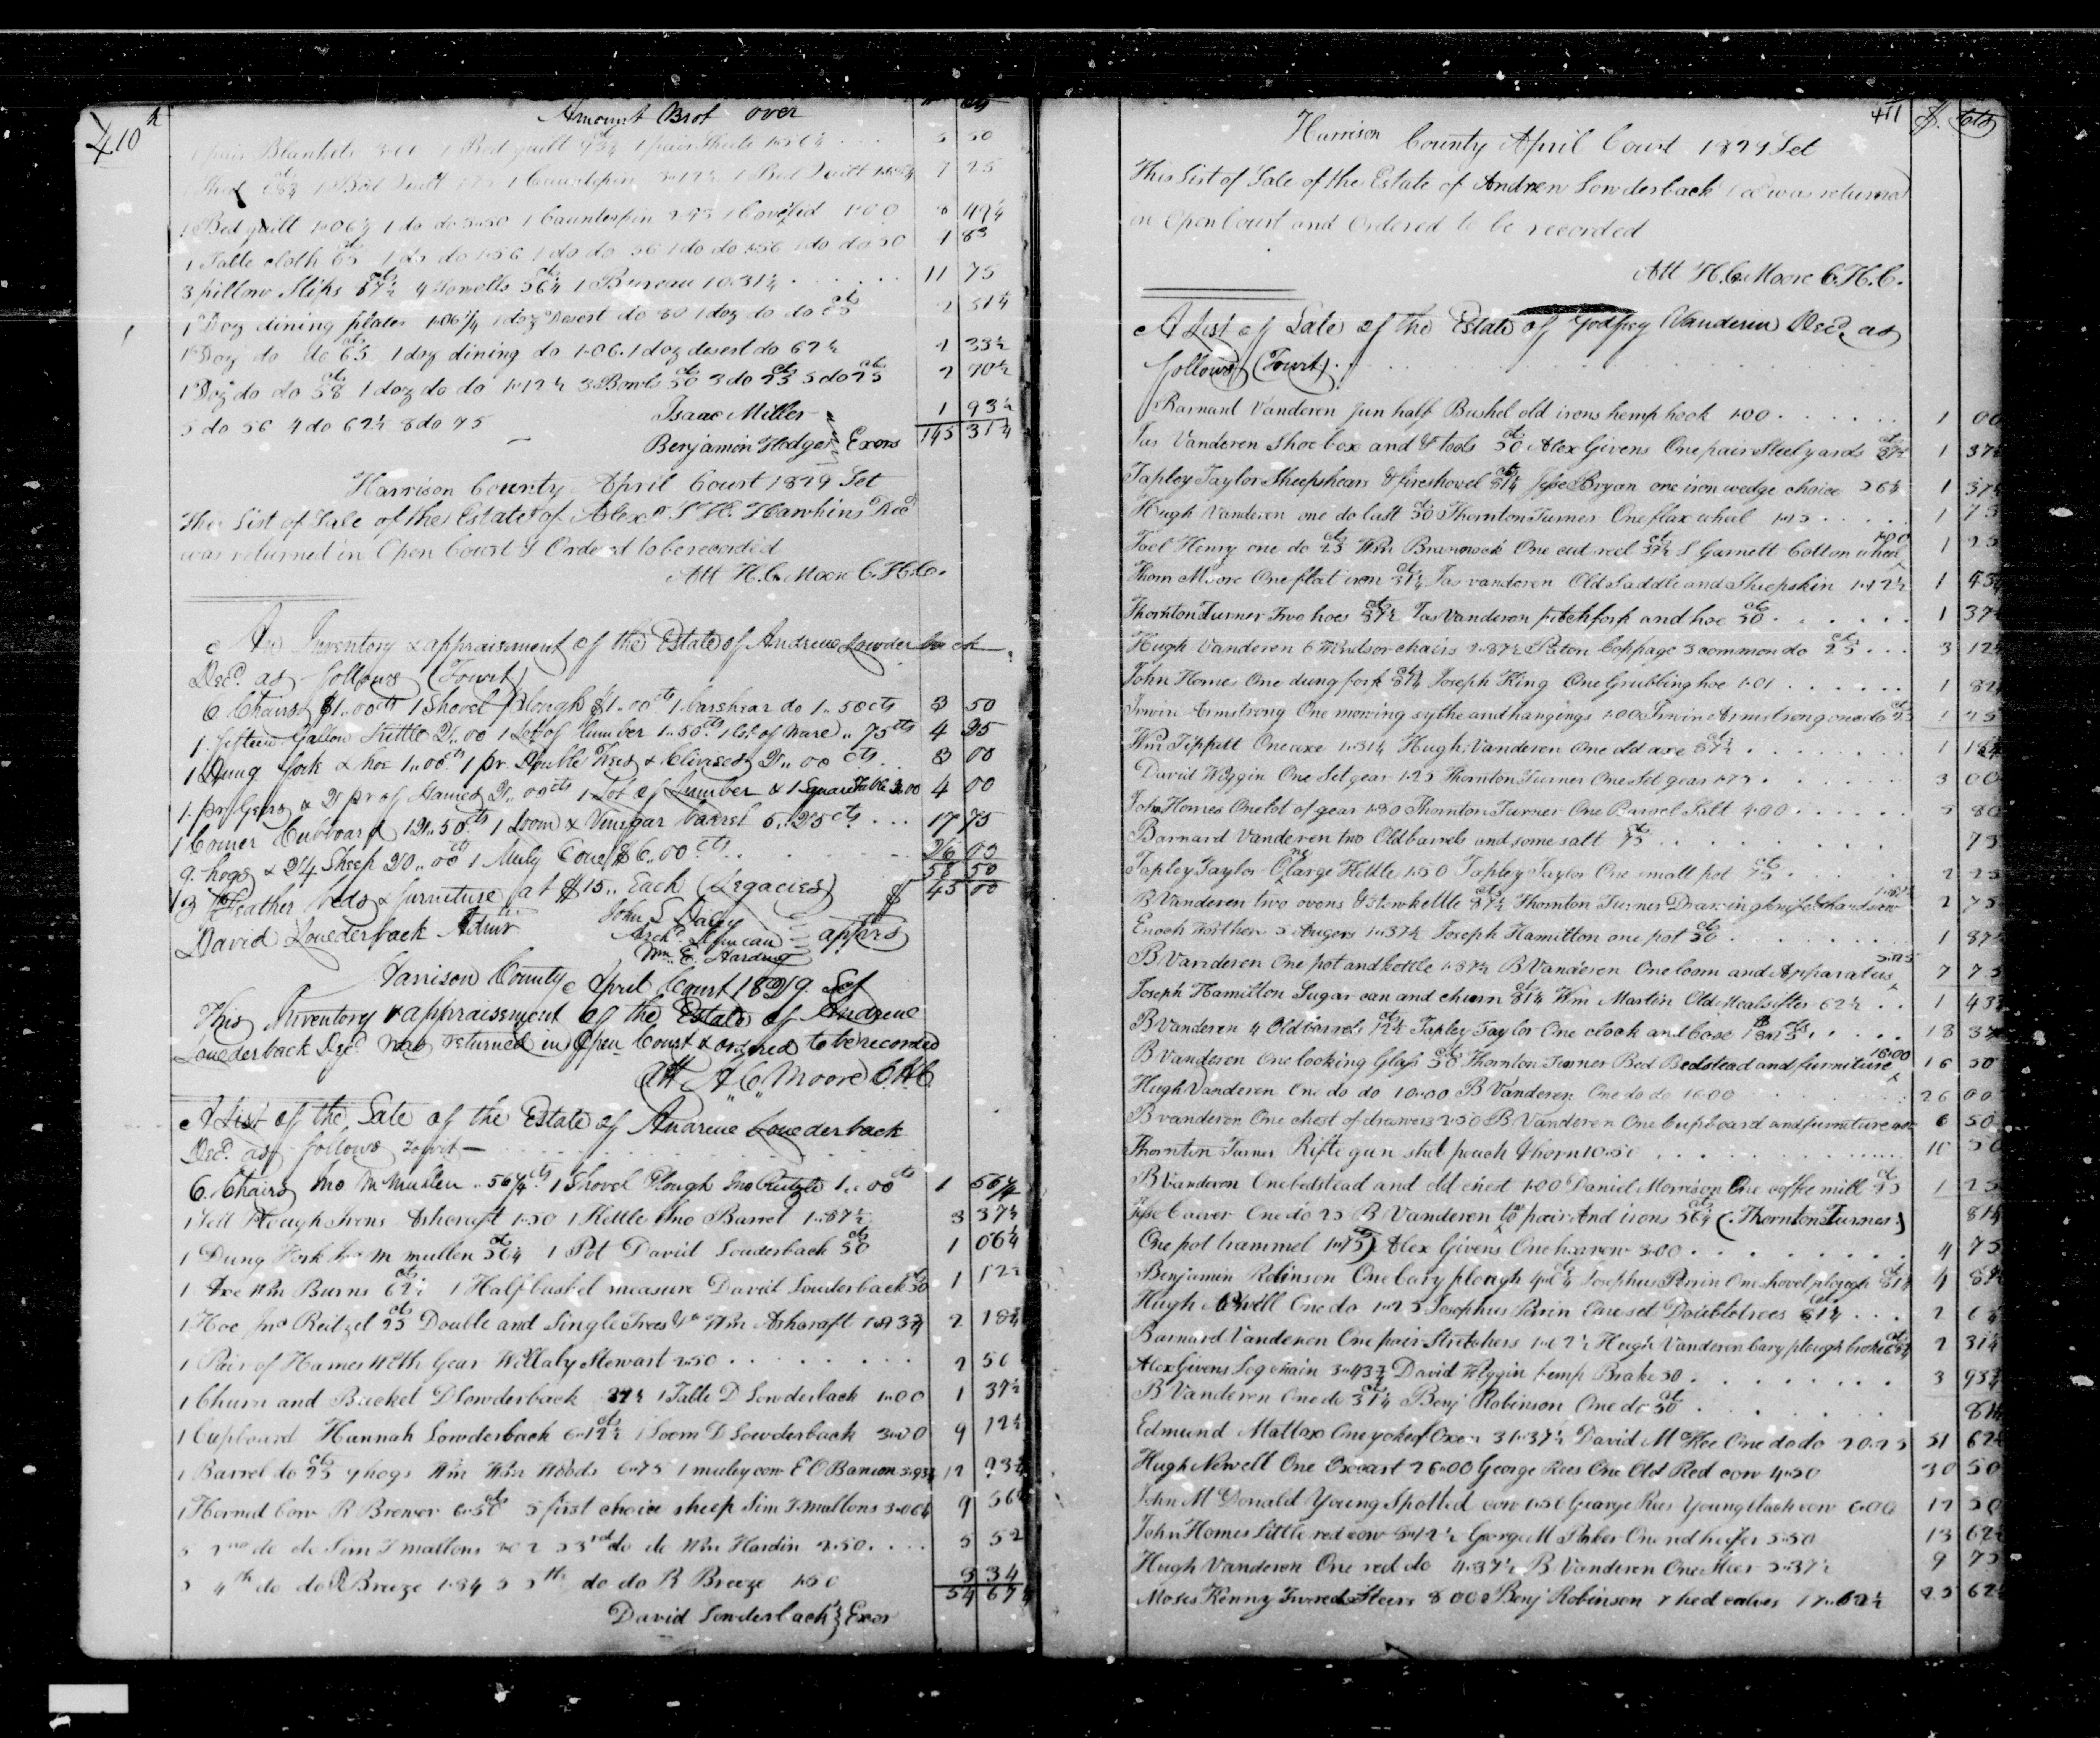 410
Amount Brot over
1 pair Blankets 3.00 1 Bed quilt 1 pair Sheets 1.56¼ 5 50
1 Bed Quilt 1 Counterpin 1 Bed Quilt 7 25
1 Bed quilt 1.06¼ 1 do do 3.50 1 Counterpin 1 Coverlid 1.00 8 49¼
1 Table cloth 1 do do 1.56 1 do do 56 1 do do 1.56 1 do do 50 4 83
3 pillow Slips 87½ 4 Towells 56¼ 1 Bureau 10.31¼ 11 75
1 Doz dining plates 1.06¼ 1 doz Desert do 80 1 doz do do 2 51¼
1 Doz do do 65 1 doz dining do 1.06. 1 doz desert do 62½ 2 33½
1 Doz do do 58 1 doz do do 1.12½ 3 Bowls 50 3 do 25 5 do 25 2 70½
5 do 56 4 do 62½ 8 do 75 1 93½
Isaac Miller
Benjamin Hodges Exors 145 31¼
Harrison County April Court 1829 Sct
This List of Sale of the Estate of Alexr Hawkins Decd
was returned in Open Court & Ordered to be recorded
Att H. C. Moore C.H.C.
An Inventory & appraisement of the Estate of Andrew Lowderback
Decd. as follows (Towit)
6 Chairs $1..00cts 1 Shovel plough $1..00cts 1 barshear do 1..50cts 3 50
1. fifteen Gallon Kettle 2..00 1 Lot of lumber 1..50cts 1 lot of Ware.. 75cts 4 25
1 Dung fork & hoe 1..00cts 1 pr. Double Trees & Clivises 2..00 cts 3 00
1. pr. Gears & 2 pr of Hames 2..00cts 1 Lot of Lumber & 1 Square table 2.00 4 00
1 Corner Cubboard 12..50cts 1 Loom & Vinegar barrel 5..25cts 17 75
9. hogs & 24 Sheep 20..00cts 1 Muly Cow $6..00cts 26 00
58 50
3 Feather beds & furniture at $15.. Each (Legacies) $ 45 00
David Louederback Admr
John L Dacey
Archd.
Wm. E. Harding apprs
Harrison County April Court 1829. Sct
This Inventory & appraisement of the Estate of Andrew
Louederback Decd was returned in Open Court & ordered to be recorded
Att H. C. Moore CHC
A List of the Sale of the Estate of Andrew Louederback
Decd. as follows towit —
6. Chairs Mc Mullen .. 56¼cts 1 Shovel Plough Jno Reitzel 1..00cts 1 56¼
1 Sett Plough Irons Ashcraft 1.50 1 Kettle Jno Barret 1..87½ 3 37½
1 Dung Fork Mc mullen 56¼ 1 Pot David Louderback 50 1 06¼
1 Axe Wm Burns 62½ 1 Half bushel measure David Louderback 50 1 12½
1 Hoe Jno Reitzel 25 Double and Single Trees &c Wm Ashcraft 1.93¾ 2 18¾
1 Pair of Hames With Gear Willaby Stewart 2.50 2 50
1 Churn and Bucket D Lowderback 37½ 1 Table D Lowderback 1.00 1 37½
1 Cupboard Hannah Lowderback 6.12½ 1 Loom D Lowderback 3.00 9 12½
1 Barrel do 25 9 hogs Wm Woods 6.75 1 muley cow E O Banion 5.93¾ 12 93¾
1 Horned Cow R Brewer 6.50 5 first choice sheep Sim T mallons 3.06¼ 9 56¼
5 2nd do do Sim T mallons 3.02 5 3rd do do Wm Hardin 2.50 5 52
5 4th do do R Breeze 1.84 5 5th do do R Breeze 1.50 3 34
54 67¼
David Lowderback Exor
411 $. cts
Harrison County April Court 1829 Sct
This List of Sale of the Estate of Andrew Lowderback Decd was returned
in Open Court and Ordered to be recorded
Att H. C. Moore C.H.C.
A List of Sale of the Estate of Godfrey Vanderen Decd. as
follows (Towit)
Barnard Vanderen Jun half Bushel old irons hemp hook 1.00 1 00
Jas Vanderen Shoe box and & tools 50 Alex Givens One pair Steelyards 87½ 1 37½
Tapley Taylor Sheepshears & fireshovel 81¼ Jesse Bryan one iron wedge choice 56¼ 1 37½
Hugh Vanderen one do last 50 Thornton Turner One flax wheel 1.25 1 75
Joel Henry one do 25 Wm Brannock One cut reel 37½ L Garnett Cotton wheel 1 25
Thom Moore One flat iron 31¼ Jas vanderen Old Saddle and Sheepskin 1.12½ 1 43¾
Thornton Turner Two hoes 87½ Jas Vanderen pitchfork and hoe 50 1 37½
Hugh Vanderen 6 Windsor chairs 2.87½ Paton Coppage 3 common do 25 3 12½
John Homes One dung fork 81¼ Joseph King One Grubbing hoe 1.01 1 82¼
Irwin Armstrong One mowing sythe and hangings 1.00 Irwin Armstrong one do 25 1 25
Wm Tippett One axe 1.31¼ Hugh Vanderen One old axe 37½ 1 18¾
David Wiggin One Set gear 1.25 Thornton Turner One Set gear 1.75 3 00
John Homes One lot of gear 1.80 Thornton Turner One Barrel Salt 4.00 5 80
Barnard Vanderen two Old barrels and some salt 75 75
Tapley Taylor One large Kettle 1.50 Tapley Taylor One small pot 75 2 25
B Vanderen two ovens & Stewkettle 87½ Thornton Turner Drawing knife & hand saw 1.87½ 2 75
Enoch Worthen 5 Augers 1.37½ Joseph Hamilton one pot 50 1 87½
B Vanderen One pot and kettle 1.87½ B Vanderen One loom and Apparatus 7 75
Joseph Hamilton Sugar can and churn 81¼ Wm Martin Old Mealsifter 62½ 1 43¾
B Vanderen 4 Old barrels 12½ Tapley Taylor One clock and case 18.25 18 37½
B Vanderen One looking Glass 50 Thornton Turner Bed Bedstead and furniture 16.00 16 50
Hugh Vanderen One do do 10.00 B Vanderen One do do 16.00 26 00
B vanderen One chest of drawers 2.50 B. Vanderen One Cupboard and furniture 6 50
Thornton Turner Rifle gun shot pouch & horn 10.50 10 50
B Vanderen One bedstead and old chest 1.00 Daniel Morrison One coffee mill 25 1 25
Jesse Caever One do 25 B Vanderen two pair And irons 56¼ (Thornton Turner) 81¼
One pot trammel 1.75) Alex Givens One harrow 3.00 4 75
Benjamin Robinson One bary plough 4.06¼ Josephus Perrin One shovel plough 81¼ 4 87½
Hugh Newell One do 1.25 Josephus Perrin One set Doubletrees 81¼ 2 6¼
Barnard Vanderen One pair Stretchers 1.62½ Hugh Vanderen bary plough broke 68¾ 2 31¼
Alex Givens Log chain 3.43¾ David Wiggin hemp Brake 50 3 93¾
B Vanderen One do 31¼ Benj Robinson One do 50 81¼
Edmund Mattox One yoke of Oxen 31.37½ David McKee One do do 20.25 51 62½
Hugh Newell One Oxcart 26.00 George Rees One Old Red cow 4.50 30 50
John McDonald Young Spotted cow George Rees Young black cow 6.00 12 50
John Homes Little red cow 8.12½ George M Parker One red heifer 5.50 13 62½
Hugh Vanderen One red do 4.37½ B Vanderen One Steer 5.37½ 9 75
Moses Kenny Two red Steers 8 00 Benj Robinson 7 hed calves 17.62½ 25 62½